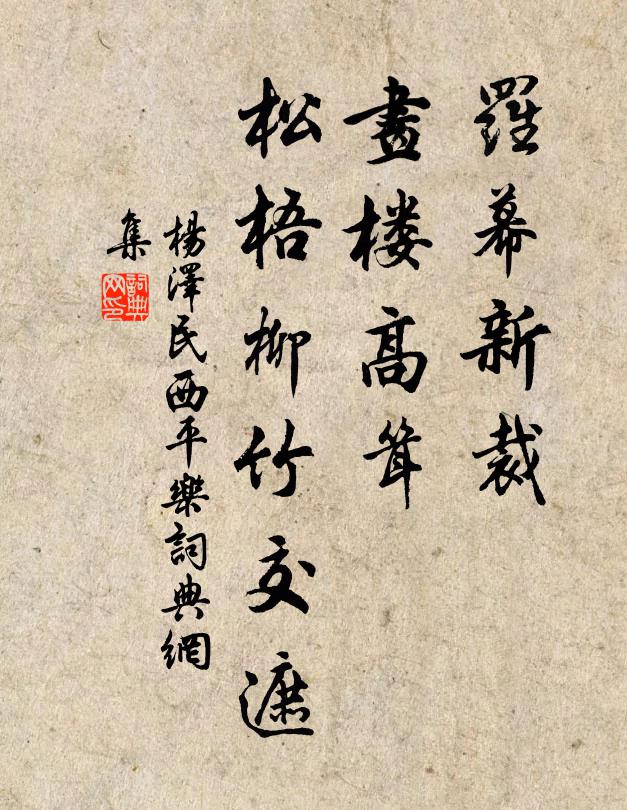 羅幕新裁
畫楼高耸
松梧柳竹交遮
楊澤民西平樂詞典網
集
詞典网印